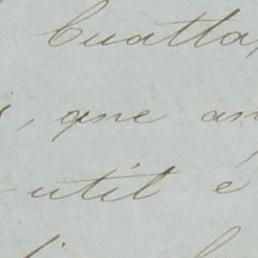 Cuatla,
, que an
util é